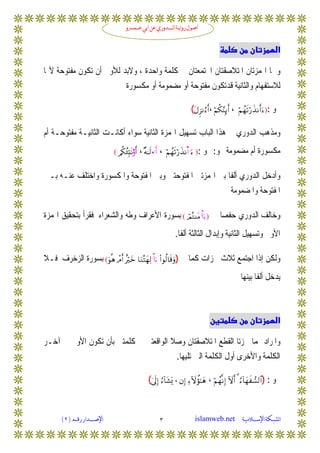 أصول رواية الدوري عن أبي عمرو
الهمزتان من كلمة
و ا مزتان ا تلاصقتان ا تمعتان كلمة واحدة ، ولابد للأو أن تكون مفتوحة لأ ا
للاستفهام والثانية قد تكون مفتوحة أو مضمومة أو مكسورة
و : (ءَأَنذَرْتَهُمْ ، أَئِنَّكُمْ ، أَءُنزِلَ)
ومذهب الدوري هذا الباب تسهيل ا مزة الثانية سواء أكانـت الثانيـة مفتوحـة أم
مكسورة أم مضمومة و: و :
وأدخل الدوري ألفا بـ ا مزتـ ا فتوحتـ وبـ ا فتوحة وا كسورة واختلف عنـه بـ
ا فتوحة وا ضمومة
وخالف الدوري حفصا بسورة الأعراف وطه والشعراء فقرأ بتحقيق ا مزة
الأو وتسهيل الثانية وإبدال الثالثة ألفا.
ولكن إذا اجتمع ثلاث زات كما بسورة الزخرف فـلا
يدخل ألفا بينها
الهمزتان من كلمتين
وا راد ما زتا القطع ا تلاصقتان وصلا الواقعتـ كلمتـ بأن تكون الأو آخـر
الكلمة والأخرى أول الكلمة ال تليها.
و : (السُّفَهَاءُ أَلَا إِنَّهُمْ ، هَٰؤُلَاءِ إِن ، يَشَاءُ إِلَىٰ)
الشبكة الإسلامية islamweb.net ٣ الإصدار رقم (٢)